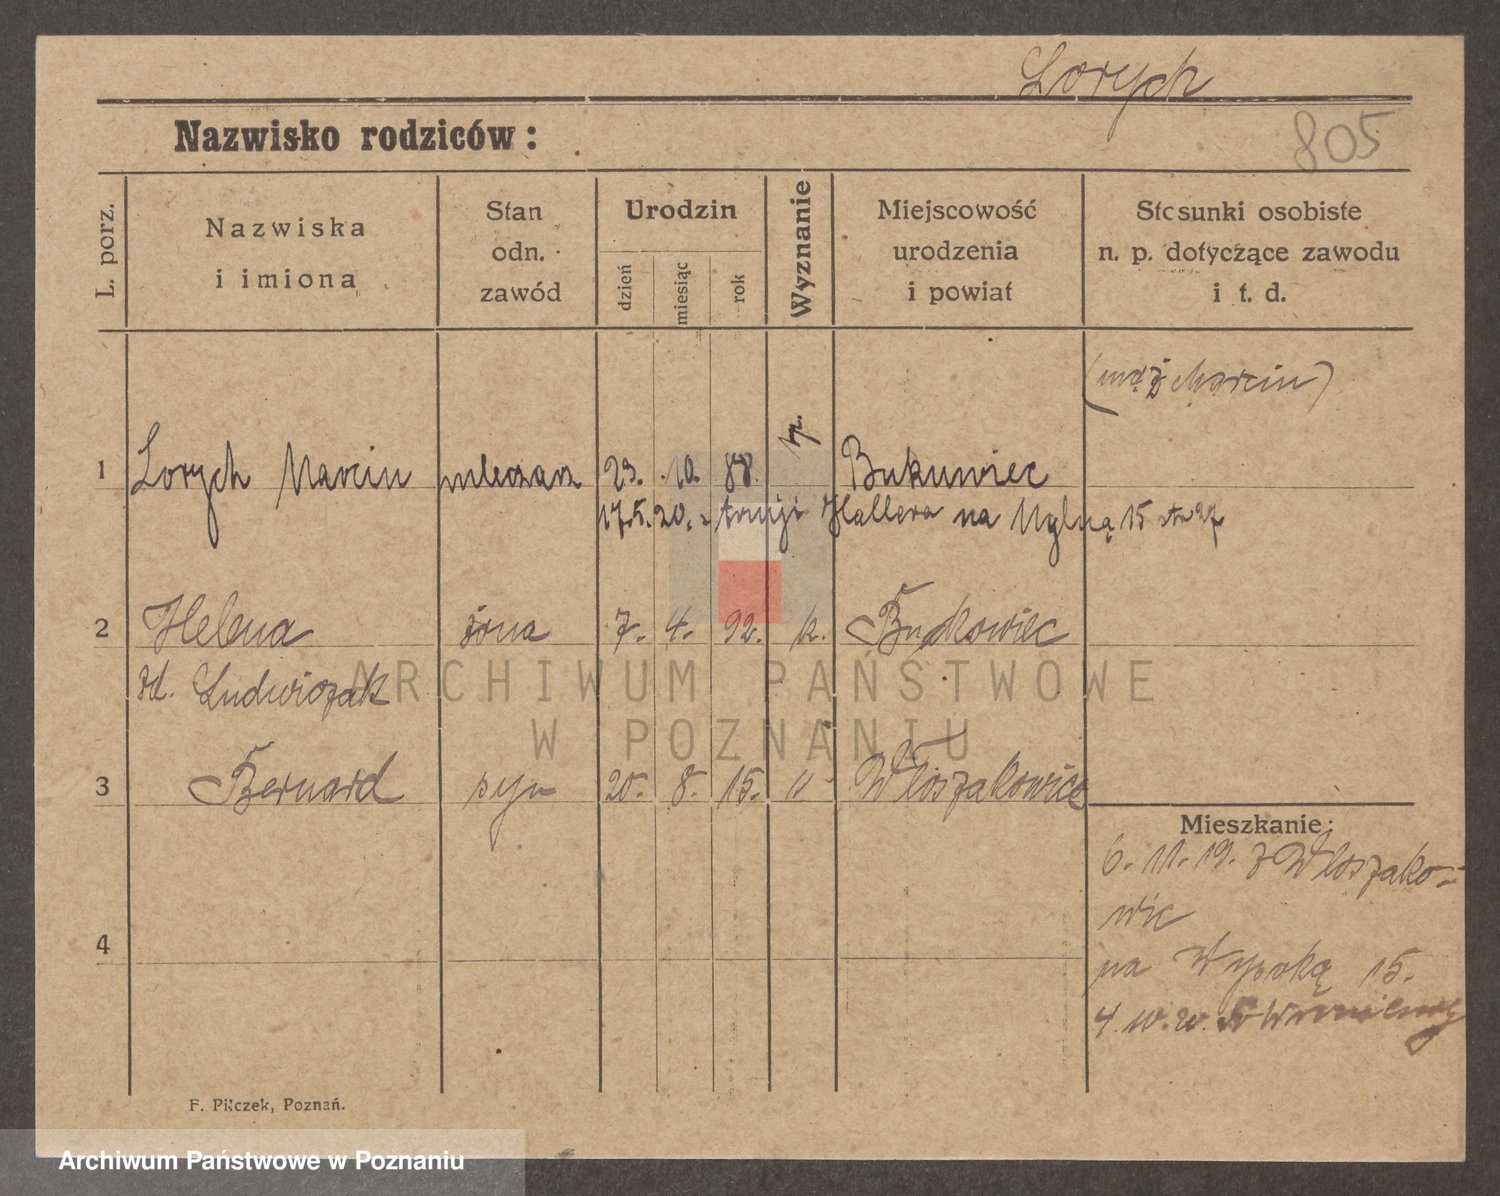 Lorych
805
Nazwisko rodziców:
L. porz.
Nazwiska
i imiona
Stan
odn.
zawód
Urodzin
dzień
miesiąc
rok
Wyznanie
Miejscowość
urodzenia
i powiat
Stosunki osobiste
n. p. dotyczące zawodu
i t. d.
(mąż Marcin)
1 Lorych Marcin mleczarz 23. 10. 88. Bukowiec
17.5.20. Hallera na Mylną 15
2 Helena żona 7. 4. 92. k. Bukowiec
zd. Ludwiczak
3 Bernard syn 20. 8. 15. " Włoszakowice
Mieszkanie:
6. 11. 19. z Włoszako=
wic
na Wysoką 15.
4
4.10.20.
F. Pilczek, Poznań.
ARCHIWUM PAŃSTWOWE
W POZNANIU
Archiwum Państwowe w Poznaniu